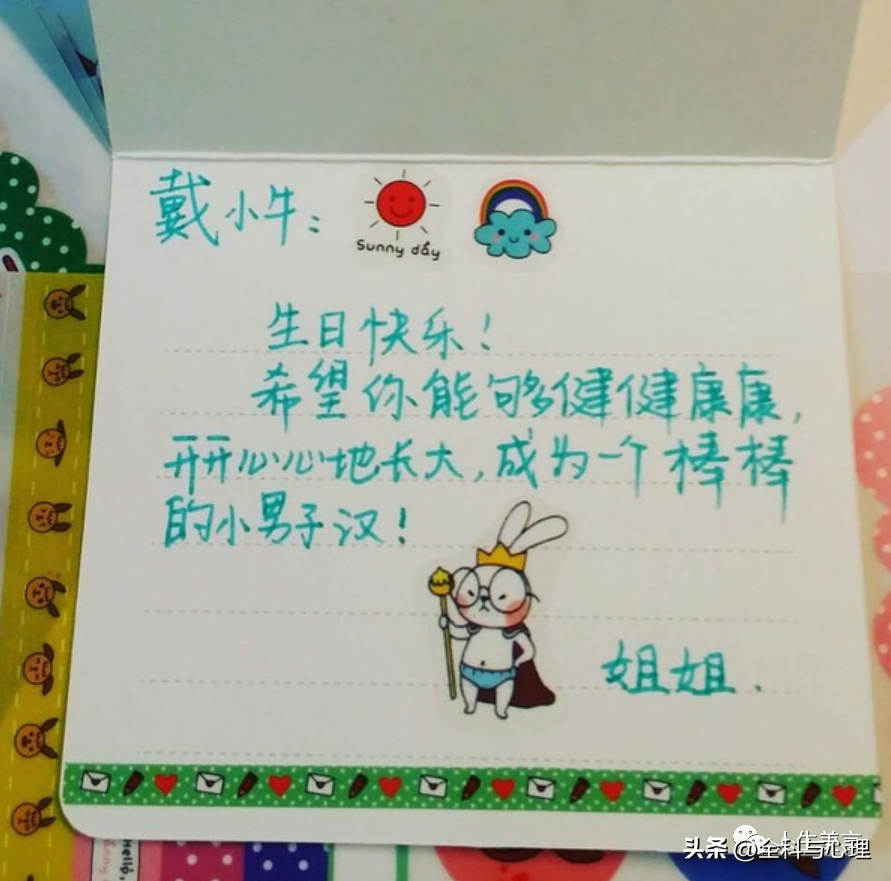 戴小牛:
Sunny day
生日快乐!
希望你能够健健康康,
开开心心地长大,成为一个棒棒
的小男子汉!
姐姐.
Hello,
头条 @全科与心理